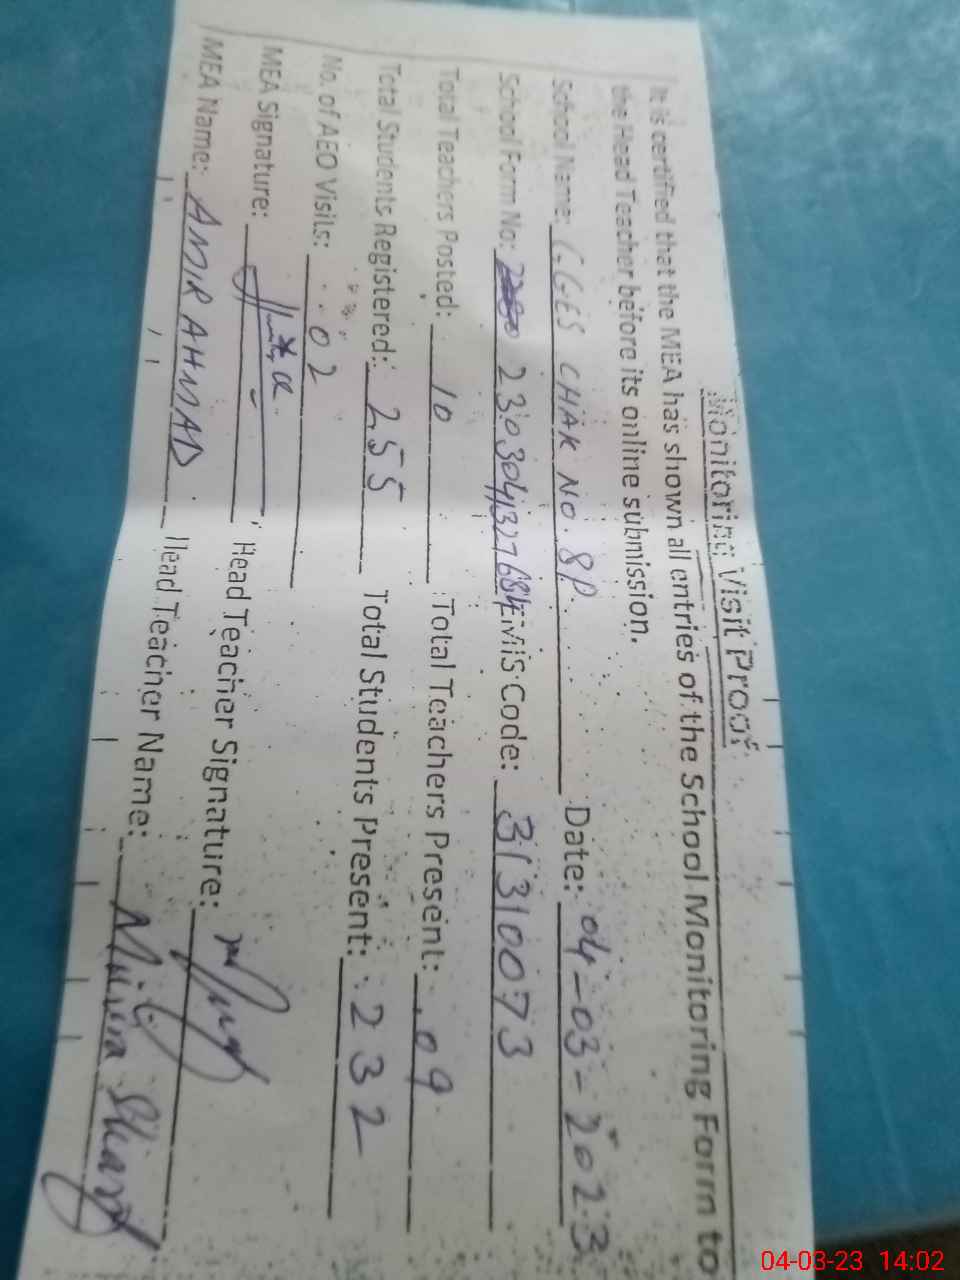 Monitoring Visit Proof
It is certified that the MEA has shown all entries of the School Monitoring Form to
the Head Teacher before its online submission.
School Name: GGES CHAK NO. 8P Date: 04-03-2023
School Form No: 230304132768 EMIS Code: 31310073
Total Teachers Posted: 10 Total Teachers Present: 09
Total Students Registered: 255 Total Students Present: 232
No. of AEO Visits: 02
MEA Signature: Head Teacher Signature:
MEA Name: AMIR AHMAD Head Teacher Name:
04-03-23 14:02